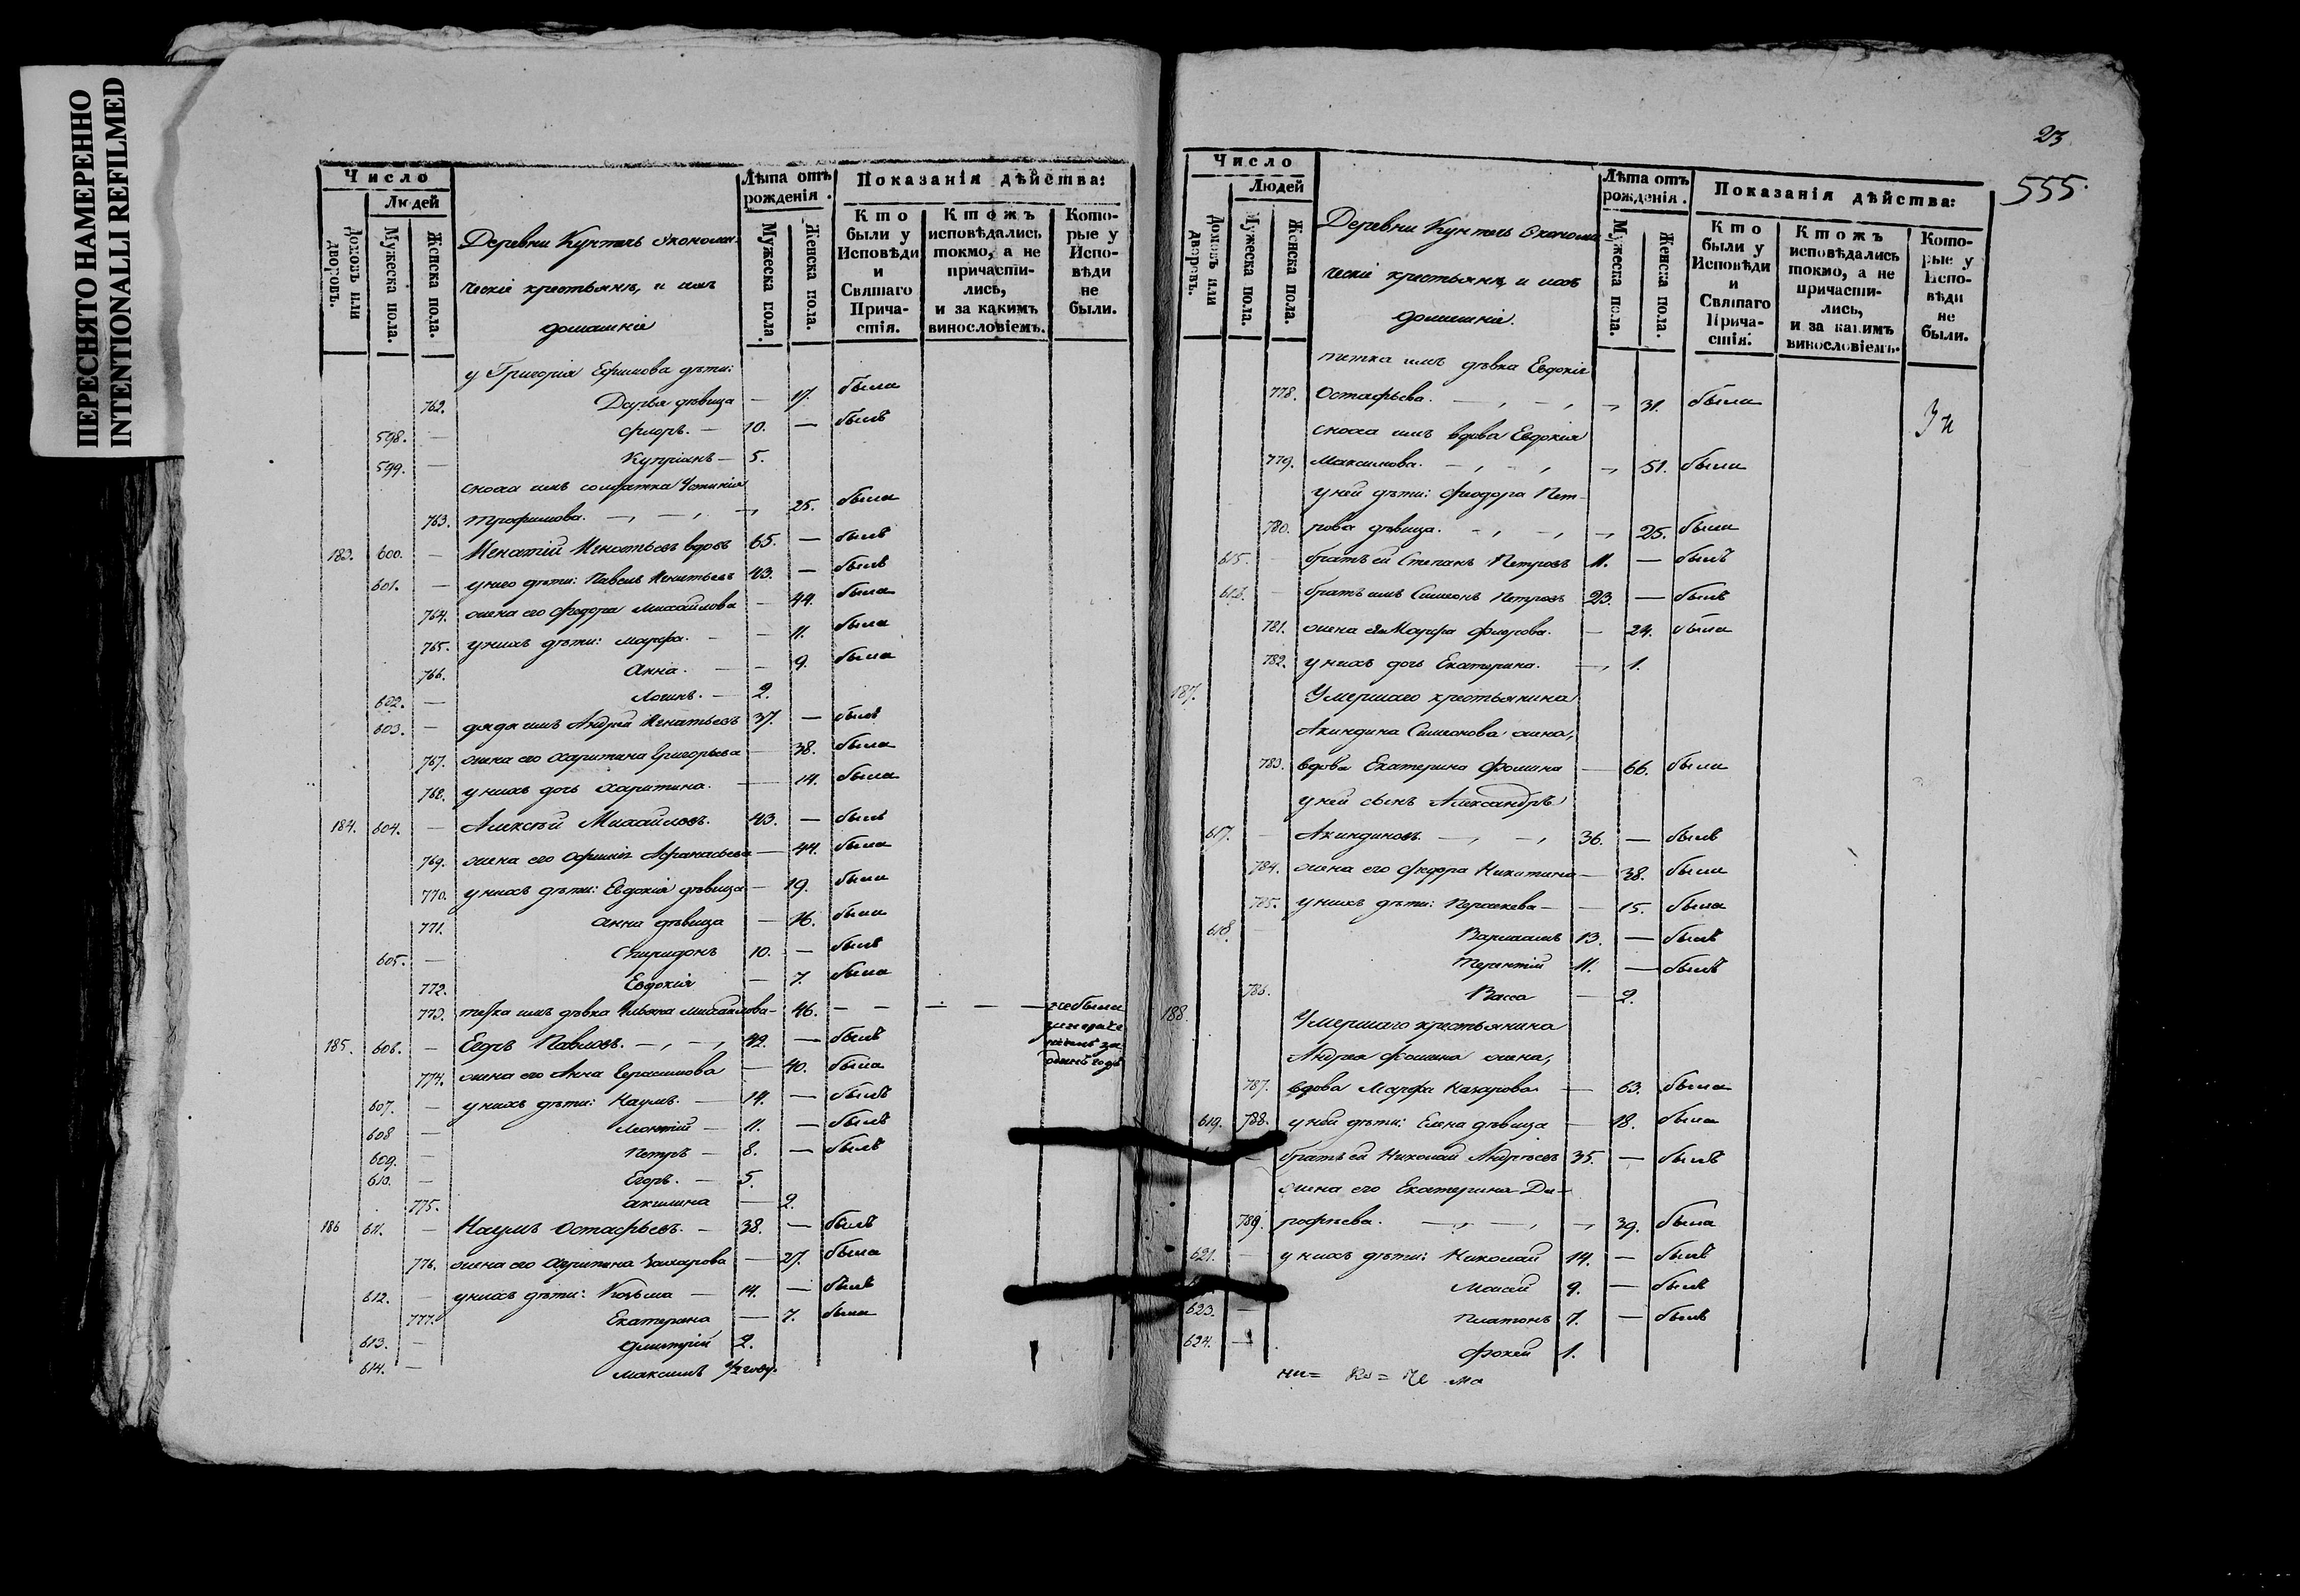 ПЕРЕСНЯТО НАМЕРЕННО
INTENTIONALLI REFILMED
Число
Людей
Домовъ или дворовъ.
Мужеска пола.
Женска пола.
Деревни Кунтель экономи-
ческіе крестьянъ, и ихъ
домашніе
Лѣта отъ рожденія.
Мужеска пола.
Женска пола.
Показанія дѣйства:
Кто были у Исповѣди и Святаго Прича-стія.
Ктожъ исповѣдались токмо, а не причасти-лись, и за какимъ винословіемъ.
Кото-рые у Испо-вѣди не были.
у Григорія Ефимова дѣти:
762. Дарья дѣвица — 17. была
598. — Флоръ. — 10. — былъ
599. — Купріанъ — 5.
сноха имъ солдатка Устинія
763. Трофимова. — 25. была
183. 600. — Игнатій Игнатьевъ вдовъ 65. — былъ
601. — у него дѣти: Павелъ Игнатьевъ 43. — былъ
764. жена его Федора Михайлова — 44. была
765. у нихъ дѣти: Марфа. — — 11. была
766. Анна. — — 9. была
602. — Логинъ. — 2.
603. — дядя имъ Андрей Игнатьевъ 37. — былъ
767. жена его Харитина Григорьева — 38. была
768. у нихъ дочь Харитина. — 14. была
184. 604. — Алексѣй Михайловъ. 43. — былъ
769. жена его Афимія Афанасьева — 44. была
770. у нихъ дѣти: Евдокія дѣвица — 19. была
771. Анна дѣвица — 16. была
605. — Спиридонъ 10. — былъ
772. Евдокія — 7. была
773. тетка имъ дѣвка Ульяна Михайлова — 46. — — — — — небыла
185. 606. — Егоръ Павловъ. — 42. — былъ
774. жена его Анна Герасимова — 40. была
607. — у нихъ дѣти: Наумъ. — 14. — былъ
608 — Леонтій — 11. — былъ
609. — Петръ — 8. — былъ
610. — Егоръ. — 5.
775. Акилина — 2.
186 611. — Наумъ Остафьевъ. — 38. — былъ
776. жена его Харитина Захарова — 27. была
612. — у нихъ дѣти: Козьма — 14. — былъ
777. Екатерина — 7. была
613. — Дмитрій 2.
614. — Максимъ 1/2 году.
23
555.
Число
Людей
Домовъ или дворовъ.
Мужеска пола.
Женска пола.
Деревни Кунтель Экономи
ческіе крестьянъ и ихъ
домашніе.
Лѣта отъ рожденія.
Мужеска пола.
Женска пола.
Показанія дѣйства:
Кто были у Исповѣди и Святаго Прича-стія.
Ктожъ исповѣдались токмо, а не причасти-лись, и за какимъ винословіемъ.
Кото-рые у Испо-вѣди не были.
тетка имъ дѣвка Евдокія
778. Остафьева. — 31. была
сноха имъ вдова Евдокія
779. Максимова. — 51. была
у ней дѣти: Феодора Пет-
780. рова дѣвица. — 25. была
615. — братъ ей Степанъ Петровъ 11. — былъ
616. — братъ имъ Симеонъ Петровъ 23. — былъ
781. жена его Марфа Флорова. — 24. была
782. у нихъ дочь Екатерина. — 1.
187. Умершаго крестьянина
Акиндина Симеонова жена,
783. вдова Екатерина Фомина — 66. была
у ней сынъ Александръ
617. — Акиндиновъ. — 36. — былъ
784. жена его Федора Никитина — 38. была
785. у нихъ дѣти: Параскева — — 15. была
618. — Варлаамъ 13. — былъ
Терентій 11. — былъ
786. Васса — 2.
188. Умершаго крестьянина
Андрея Фомина жена,
787. вдова Марфа Назарова — 63. была
619. 788. у ней дѣти: Елена дѣвица — 18. была
— братъ ей Николай Андреевъ 35. — былъ
жена его Екатерина До-
789. рофѣева. — 39. была
621. — у нихъ дѣти: Николай 14. — былъ
Моисей 9. — былъ
623. — Платонъ 7. — былъ
624. — Фокей 1.